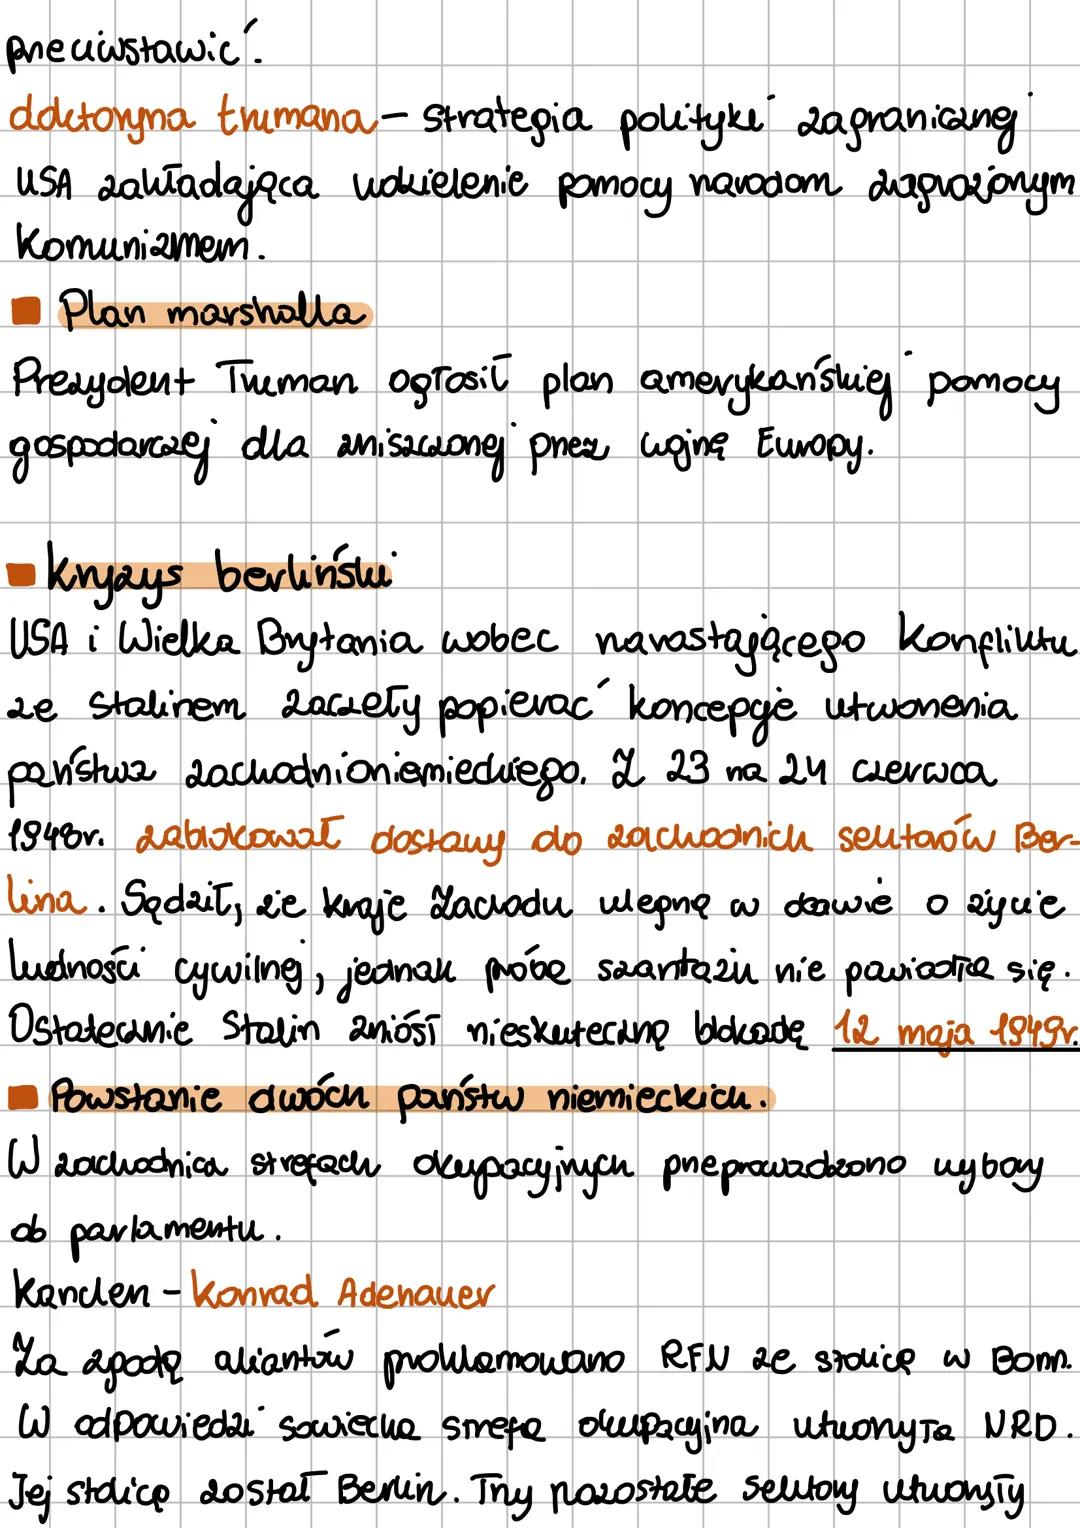 przeciwstawić.
doktoryna trumana - strategia polityki zagranicznej
USA zakładająca udzielenie pomocy narodom zagrożonym
komunizmem.
Plan marshalla
Prezydent Truman ogłosił plan amerykańskiej pomocy
gospodarczej dla zniszczonej przez wojnę Europy.
kryzys berliński
USA i Wielka Brytania wobec narastającego konfliktu
ze Stalinem zaczęły popierać koncepcje utworzenia
państwa zachodnioniemieckiego. Z 23 na 24 czerwca
1948r. zablokował dostawy do zachodnich sektorów Ber-
lina. Sądził, że kraje Zachodu ulegną w obawie o życie
ludności cywilnej, jednak próba szantażu nie powiodła się.
Ostatecznie Stalin zniósł nieskuteczną blokadę 12 maja 1949r.
Powstanie dwóch państw niemieckich.
W zachodnica strefach okupacyjnych przeprowadzono wybory
ob parlamentu.
kanclerz - Konrad Adenauer
Za zgodą aliantów proklamowano RFN ze stolicą w Bonn.
W odpowiedzi sowiecka strefa okupacyjna utworzyła NRD.
Jej stolicą został Berlin. Trzy pozostałe sektory utworzyły